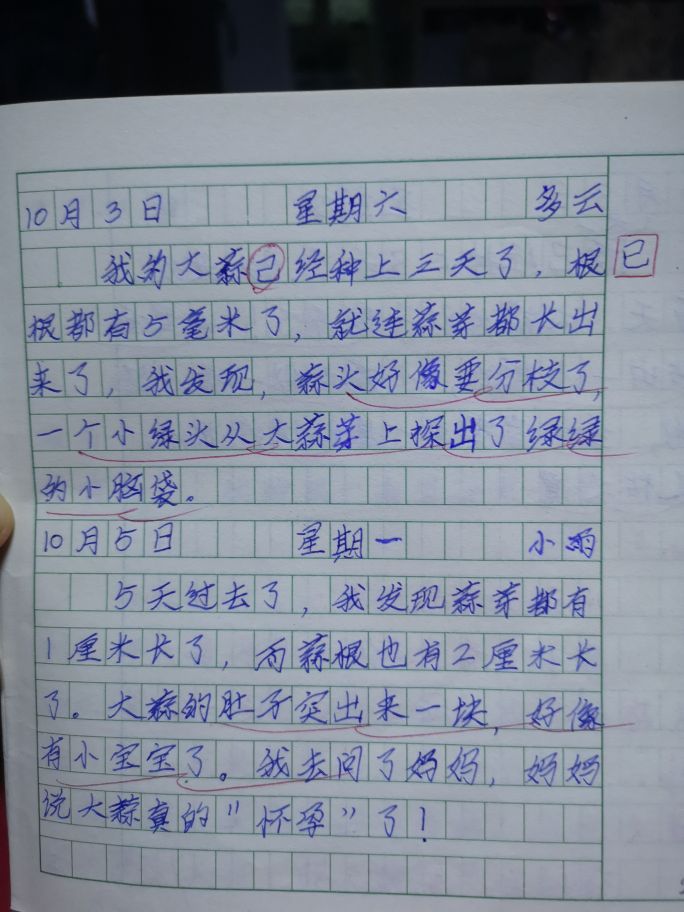 10月3日 星期六 多云
我的大蒜己经种上三天了，根 已
根都有5毫米了，就连蒜芽都长出
来了，我发现，蒜头好像要分枝了，
一个小绿头从大蒜芽上探出了绿绿
的小脑袋。
10月5日 星期一 小雨
5天过去了，我发现蒜芽都有
1厘米长了，而蒜根也有2厘米长
了。大蒜的肚子突出来一块，好像
有小宝宝了。我去问了妈妈，妈妈
说大蒜真的"怀孕"了！